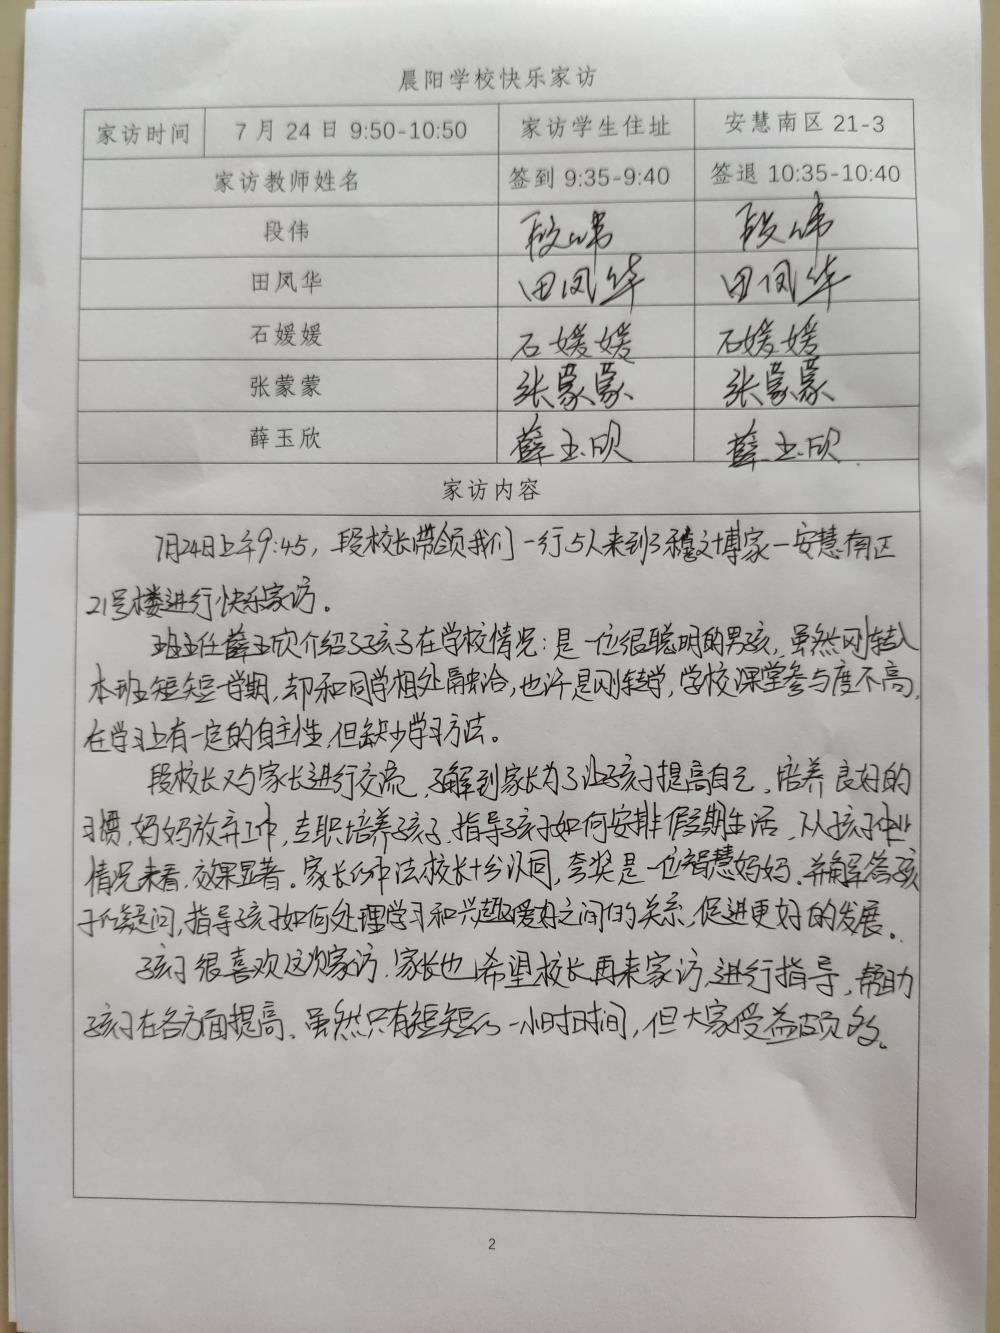 晨阳学校快乐家访
家访时间 7月24日 9:50-10:50 家访学生住址 安慧南区 21-3
家访教师姓名 签到 9:35-9:40 签退 10:35-10:40
段伟 段伟 段伟
田凤华 田凤华 田凤华
石媛媛 石媛媛 石媛媛
张蒙蒙 张蒙蒙 张蒙蒙
薛玉欣 薛玉欣 薛玉欣
家访内容
7月24日上午9:45，段校长带领我们一行5人来到了穆文博家一安慧南区
21号楼进行快乐家访。
班主任薛玉欣介绍了孩子在学校情况：是一位很聪明的男孩，虽然刚转入
本班短短一学期，却和同学相处融洽，也许是刚转学，学校课堂参与度不高，
在学习上有一定的自主性，但缺少学习方法。
段校长又与家长进行交流，了解到家长为了让孩子提高自己，培养良好的
习惯，妈妈放弃工作，专职培养孩子，指导孩子如何安排假期生活，从孩子作业
情况来看，效果显著。家长的做法校长十分认同，夸奖是一位智慧妈妈。并解答孩
子的疑问，指导孩子如何处理学习和兴趣爱好之间的关系，促进更好的发展。
孩子很喜欢这次家访，家长也希望校长再来家访，进行指导，帮助
孩子在各方面提高。虽然只有短短的一小时时间，但大家受益颇多。
2